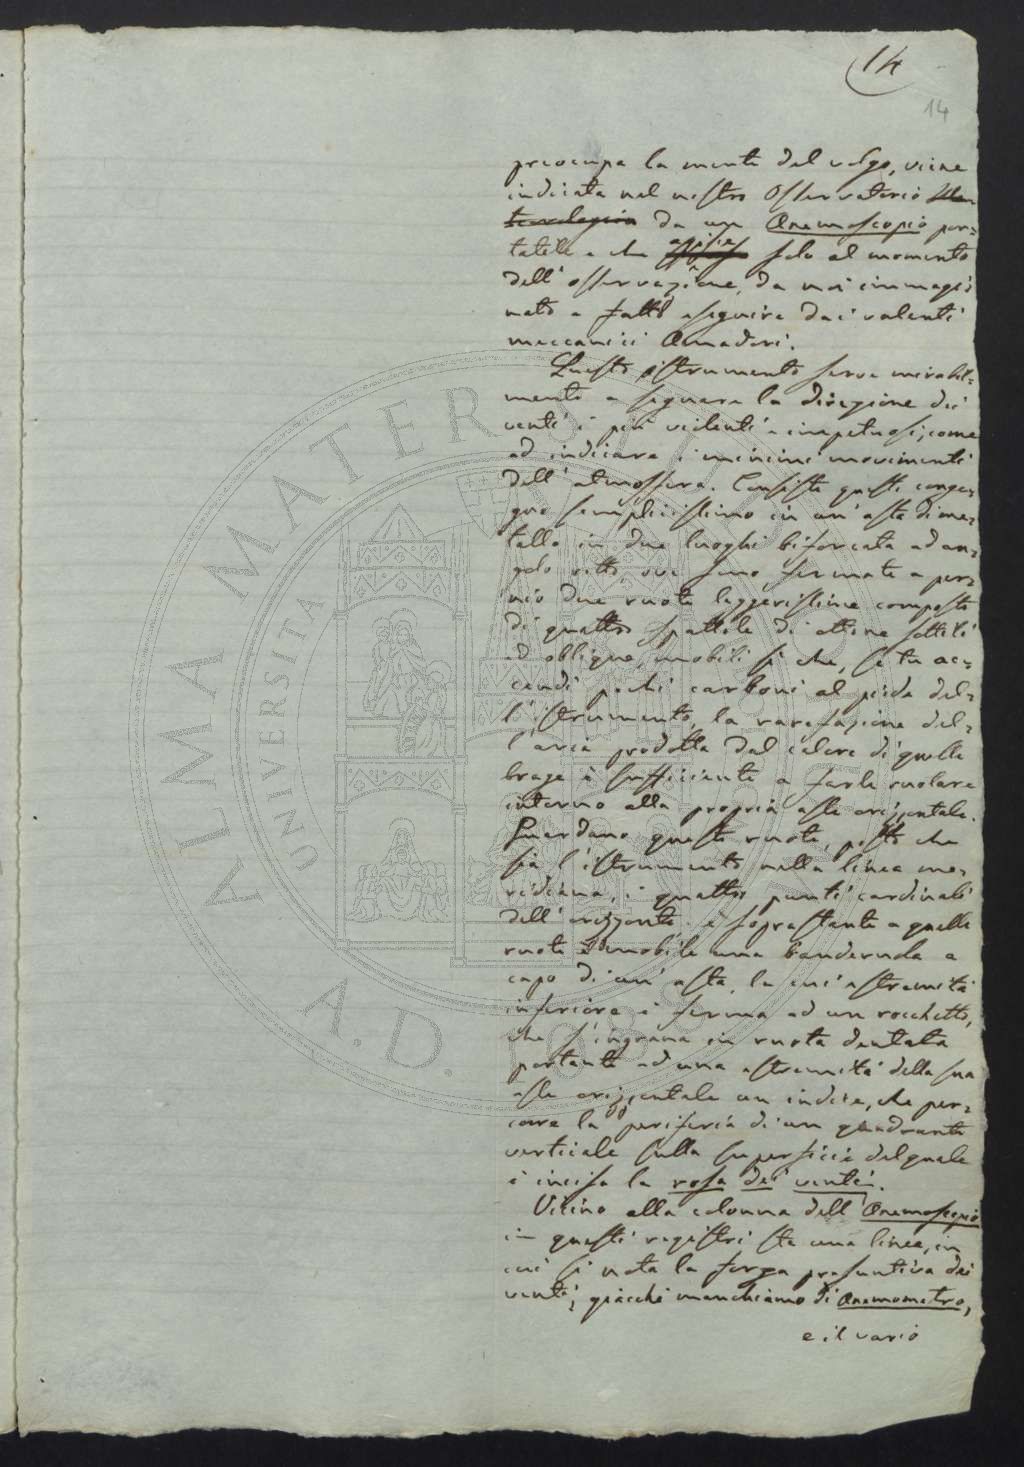 14
14
preocupa la mente del volgo, viene
indicata nel nostro Osservatorio Me-
teorologico da un Anemoscopio por-
tatile e che appiè solo al momento
dell'osservazione, da noi immagi-
nato e fatto eseguire dai valenti
meccanici Amadori.
Questo istrumento serve mirabil-
mente a segnare la direzione dei
venti i più violenti e impetuosi, come
ad indicare i minimi movimenti
dell'atmosfera. Consiste questo conge-
gno semplicissimo in un'asta di me-
tallo in due luoghi biforcata ad an-
golo retto, ove sono fermate a per-
nio due ruote leggerissime composte
di quattro spattole di ottone sottili
ed oblique, mobili sì che, se tu ac-
cendi pochi carboni al piede del-
l'istrumento, la rarefazione del-
l'aria prodotta dal calore di quelle
brage è sufficiente a farle ruotare
intorno alla propria asse orizzontale.
Guardano queste ruote, posto che
sia l'istrumento nella linea me-
ridiana, i quattro punti cardinali
dell'orizzonte, e soprastante a quelle
ruote è mobile una banderuola a
capo di un'asta, la cui estremità
inferiore è ferma ad un rocchetto,
che s'ingrana in ruota dentata
portante ad una estremità della sua
asse orizzontale un indice, che per-
corre la periferia di un quadrante
verticale sulla superficie del quale
è incisa la rosa dei venti.
Vicino alla colonna dell'Anemoscopio
in questi registri sta una linea, in
cui si nota la forza presuntiva dei
venti, giacchè manchiamo di Anemometro,
e il vario
ALMA MATER STUDIORUM
UNIVERSITA
A.D. 1088